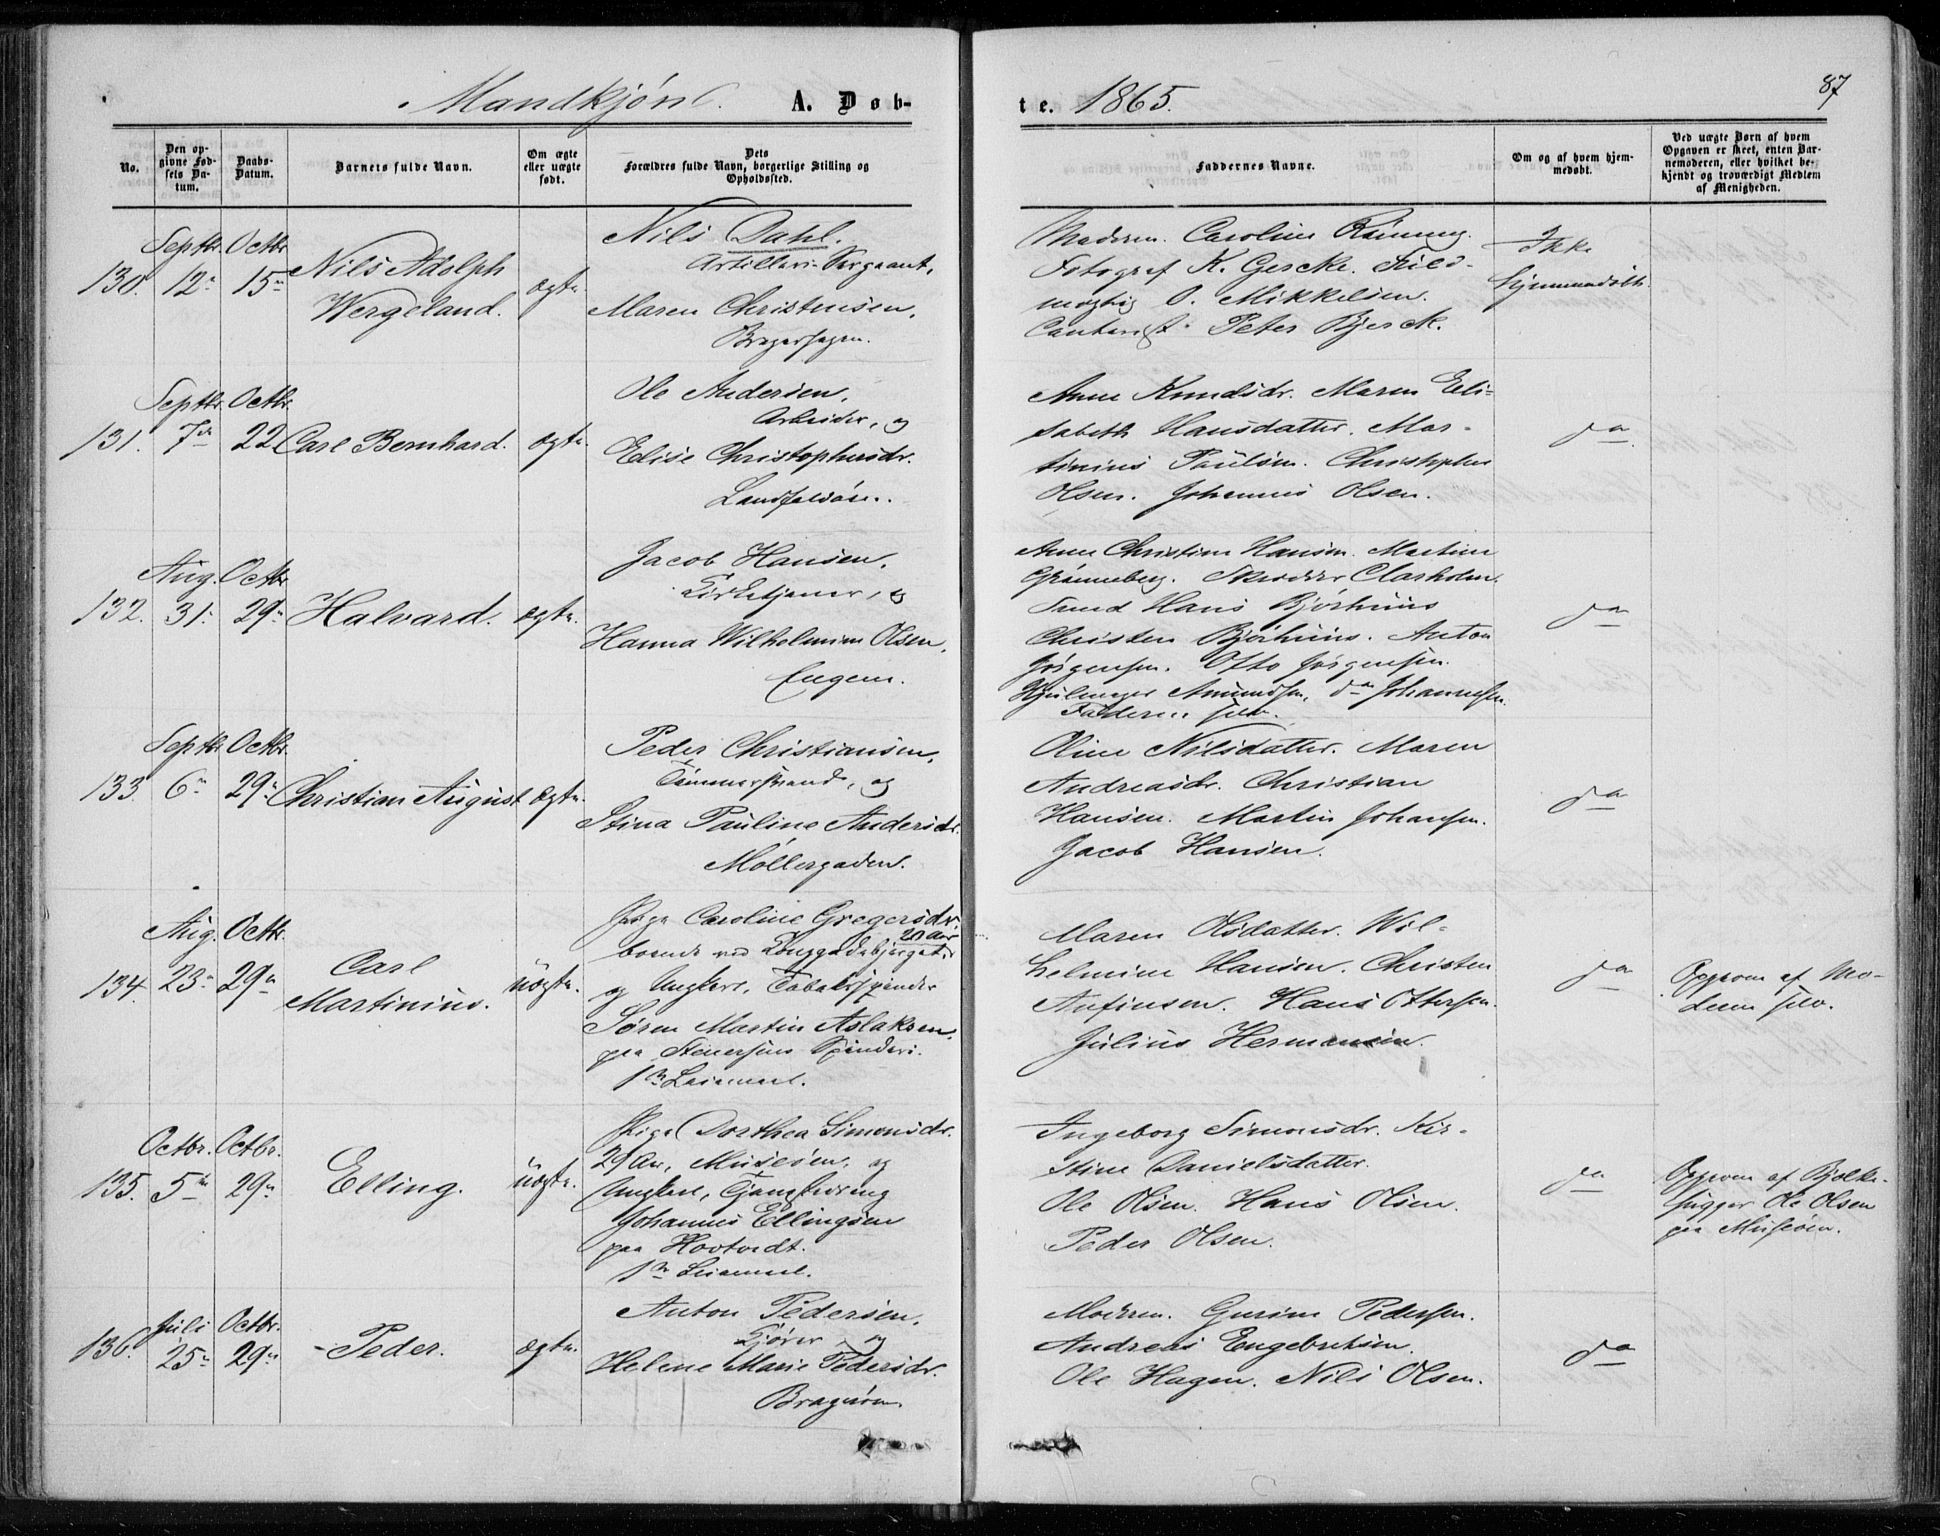 Mandkjøn. A. Døb-
te. 1865.
87
No.
Den op-
givne Fød-
sels Da-
tum.
Daabs-
Datum.
Barnets fulde Navn.
Om ægte
eller uægte
født.
Dets
Forældres fulde Navn, borgerlige Stilling og
Opholdssted.
Faddernes Navne.
Om og af hvem hjem-
medøbt.
Ved uægte Børn af hvem
Opgaven er skeet, enten Bar-
nemoderen, eller hvilket be-
kjendt og troværdigt Medlem
af Menigheden.
130.
Septbr.
12
Octbr
15
Nils Adolph
Wergeland.
ægte.
Nils Dahl.
Artilleri Sergeant,
Maren Christensen,
Fotograf K. Gercke.
O. Mikkelsen.
Peter Bjerck.
Ikke
hjemmedøbt.
131.
Septbr.
7
Octbr.
22
Carl Bernhard.
ægte.
Ole Andersen,
Arbeider, og
Elise Christophersdr.
Landfaldøen.
Anne Knudsdr. Maren Eli-
sabeth Hansdatter. Mar-
tinius Paulsen. Christopher
Olsen. Johannes Olsen.
do
132.
Aug.
31.
Octbr
29
Halvard.
ægte.
Jacob Hansen,
Kirketjener, og
Hanna Wilhelmine Olsen,
Engene.
Anne Christine Hansen. Martine
Grønneberg. Skrædder Clasholm.
Hans Bjørhuus
Christen Bjørhuus. Anton
Jørgensen. Otto Jørgensen.
Amundsen, do Johannessen.
Faderen selv.
do
133.
Septbr.
6
Octbr.
29
Christian August
ægte.
Peder Christiansen,
og
Stina Pauline Andersdr.
Møllergaden.
Oline Nilsdatter. Maren
Andreasdr. Christian
Hansen. Martin Johansen.
Jacob Hansen.
do
134.
Aug.
23
Octbr.
29
Carl
Martinius.
uægte.
Pige Caroline Gregersdr.
20 Aar
boende ved Konggadebjerget
og Ungkarl, Tobakspinder
Søren Martin Aslaksen,
paa Steensens Spinderi.
1ste Leiermaal.
Maren Olsdatter. Wil-
helmine Hansen. Christen
Anfinsen. Hans Ottersen.
Julius Hermansen.
do
Opgiven af Mo-
deren selv.
135.
Octbr.
5
Octbr.
29
Elling.
uægte.
Pige Dorthea Simonsdr.
29 Aar, Museøen, og
Ungkarl,
Johannes Ellingsen
paa Hovtvedt.
1ste Leiermaal.
Ingeborg Simonsdr. Kir-
stine Danielsdatter.
Ole Olsen. Hans Olsen.
Peder Olsen.
do
Opgiven af Bjelke-
hugger Ole Olsen
paa Museøen.
136.
Juli
25
Octbr.
29
Peder.
ægte.
Anton Pedersen,
Kjører og
Helene Marie Pedersdr.
Bragernes.
Moderen. Gurine Pedersen.
Andreas Engebretsen.
Ole Hagen. Nils Olsen.
do